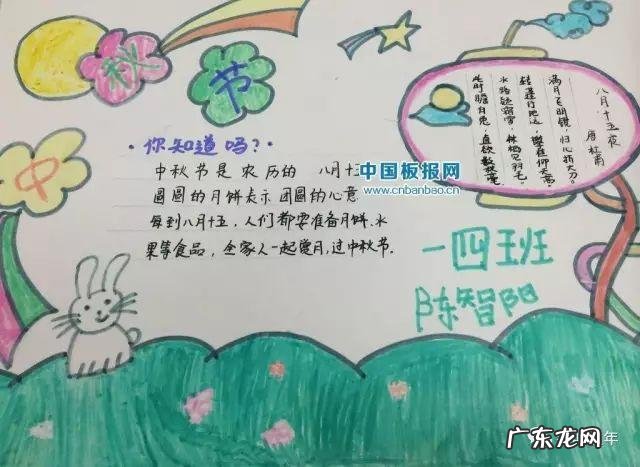 中秋节
你知道吗?
中秋节是农历的 八月十
圆圆的月饼表示团圆的心意
每到八月十五，人们都要准备月饼.水
果等食品，全家人一起赏月,过中秋节.
中国板报网
www.cnbanbao.cn
八月十五夜
唐 杜甫
满月飞明镜，归心折大刀。
转蓬行地远，攀桂仰天高。
水路疑霜雪，林栖见羽毛。
此时瞻白兔，直欲数秋毫。
一四班
陈智阳
年
广东龙网